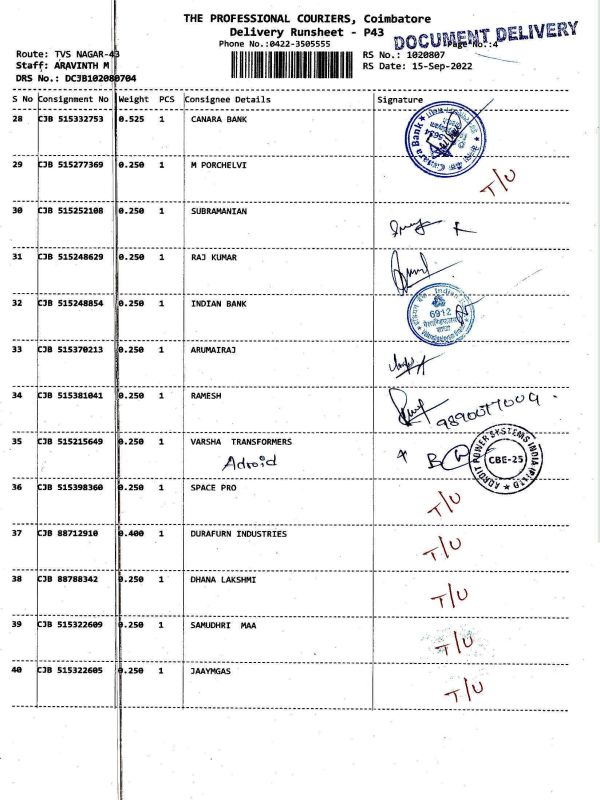 THE PROFESSIONAL COURIERS, Coimbatore
Delivery Runsheet - P43
DOCUMENT DELIVERY
Phone No.:0422-3505555
Page No.:4
Route: TVS NAGAR-43
RS No.: 1020807
Staff: ARAVINTH M
RS Date: 15-Sep-2022
DRS No.: DCJB102080704
S No Consignment No Weight PCS Consignee Details Signature
28 CJB 515332753 0.525 1 CANARA BANK
Canara Bank
29 CJB 515277369 0.250 1 M PORCHELVI T/U
30 CJB 515252108 0.250 1 SUBRAMANIAN
31 CJB 515248629 0.250 1 RAJ KUMAR
32 CJB 515248854 0.250 1 INDIAN BANK
Indian
6912
33 CJB 515370213 0.250 1 ARUMAIRAJ
34 CJB 515381041 0.250 1 RAMESH
35 CJB 515215649 0.250 1 VARSHA TRANSFORMERS
Adroid
ADROIT POWER SYSTEMS INDIA (P) LTD
CBE-25
36 CJB 515398360 0.250 1 SPACE PRO T/U
37 CJB 88712910 0.400 1 DURAFURN INDUSTRIES T/U
38 CJB 88788342 0.250 1 DHANA LAKSHMI T/U
39 CJB 515322609 0.250 1 SAMUDHRI MAA T/U
40 CJB 515322605 0.250 1 JAAYMGAS T/U